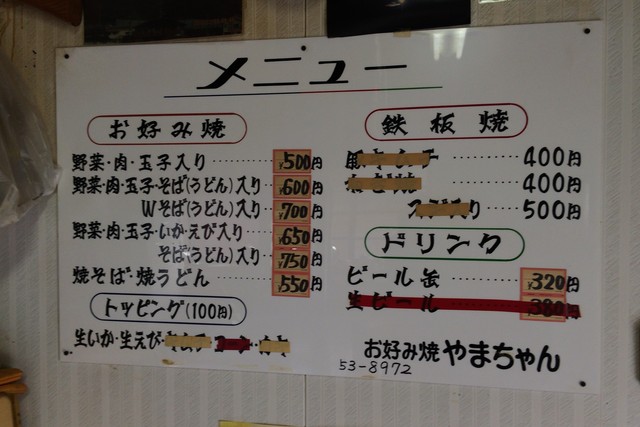 メニュー
お好み焼
野菜・肉・玉子入り………¥500円
野菜・肉・玉子・そば(うどん)入り‥¥600円
Wそば(うどん)入り‥¥700円
野菜・肉・玉子・いか・えび入り‥¥650円
そば(うどん)入り‥¥750円
焼そば・焼うどん………¥550円
トッピング(100円)
生いか・生えび
鉄板焼
………400円
………400円
入り………500円
ドリンク
ビール缶………¥320円
生ビール ¥380円
お好み焼やまちゃん
53-8972